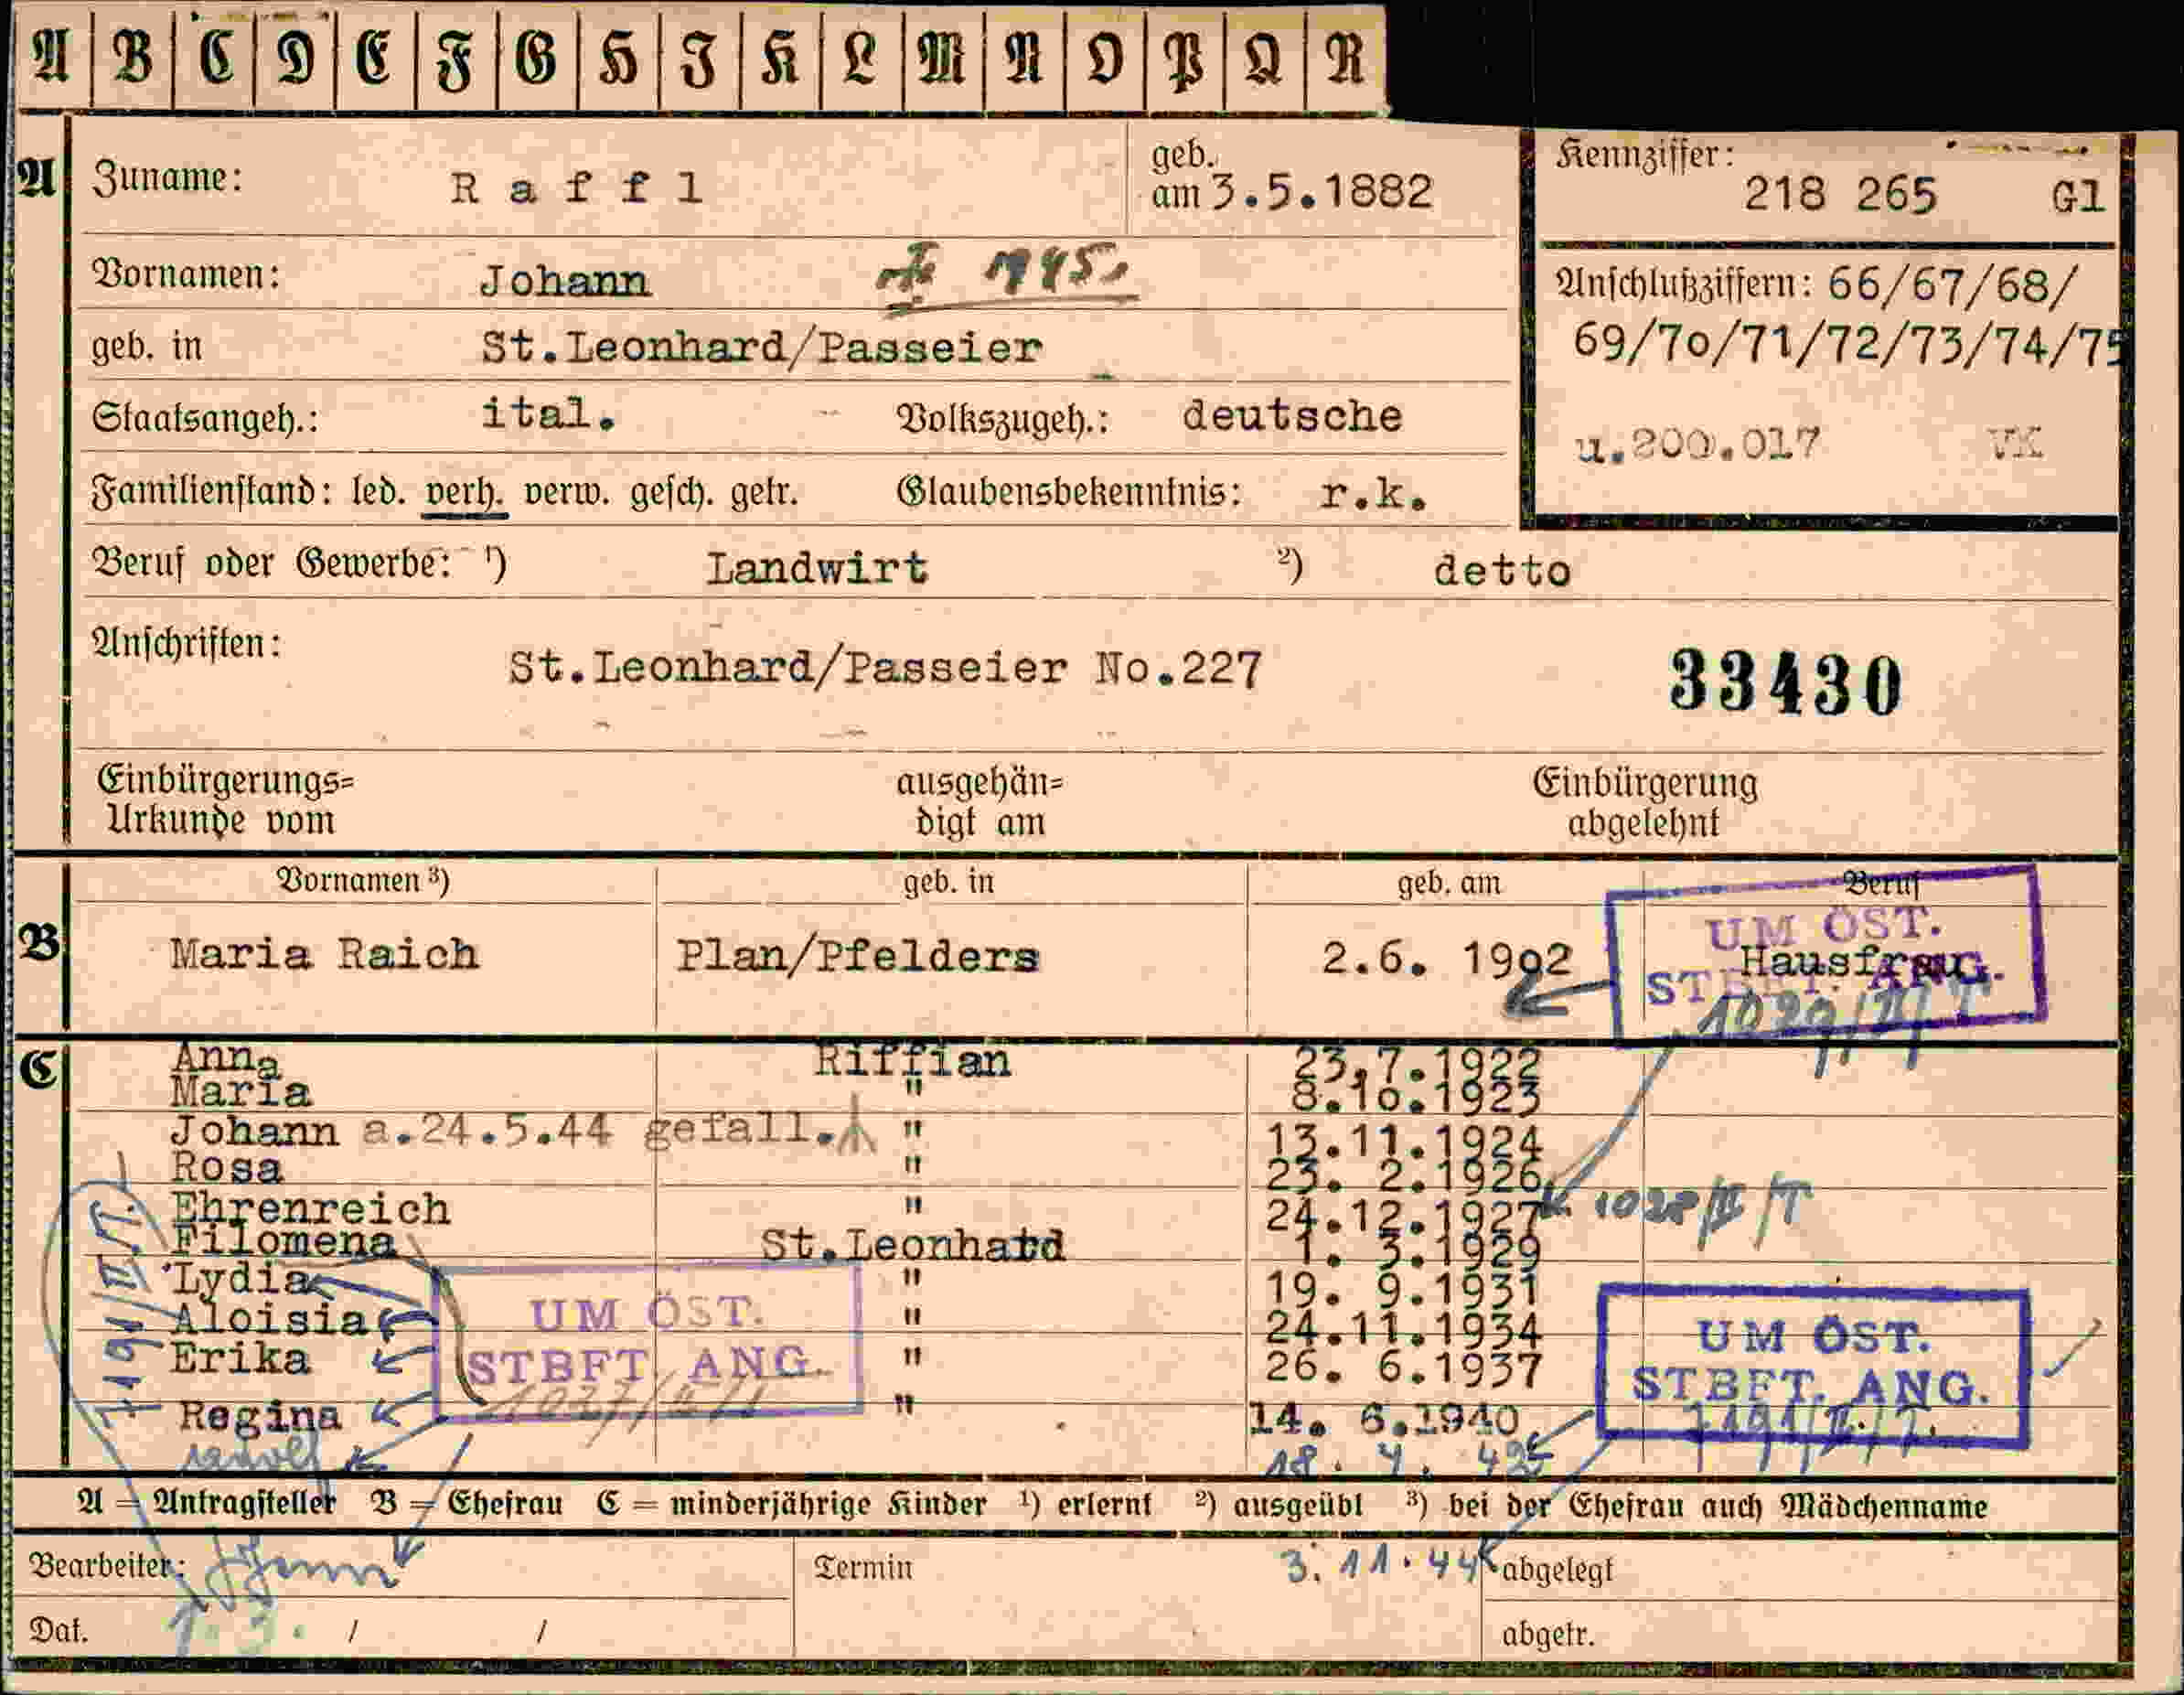 A B C D E F G H I K L M N O P Q R
A Zuname: Raffl geb. am 3.5.1882
Kennziffer: 218 265 Gl
Vornamen: Johann 1945.
Anschlußziffern: 66/67/68/
69/70/71/72/73/74/75
geb. in St.Leonhard/Passeier
Staatsangeh.: ital. Volkszugeh.: deutsche
u.200.017 VK
Familienstand: led. verh. verw. gesch. getr. Glaubensbekenntnis: r.k.
Beruf oder Gewerbe: 1) Landwirt 2) detto
Anschriften: St.Leonhard/Passeier No.227 33430
Einbürgerungs= Urkunde vom ausgehän= digt am Einbürgerung abgelehnt
Vornamen 3) geb. in geb. am Beruf
B Maria Raich Plan/Pfelders 2.6. 1902 Hausfrau
UM ÖST.
STBFT. ANG.
1029/II/T
C Anna Riffian 23.7.1922
Maria " 8.10.1923
Johann a.24.5.44 gefall. " 13.11.1924
Rosa " 23. 2.1926
Ehrenreich " 24.12.1927 1028/II/T
Filomena St.Leonhard 1. 3.1929
Lydia " 19. 9.1931
Aloisia " 24.11.1934
Erika " 26. 6.1937
Regina " 14. 6.1940
18. 4. 43
UM ÖST.
STBFT. ANG.
1027/II/T
UM ÖST.
STBFT. ANG.
7191/II/T.
7191/II/T
A = Antragsteller B = Ehefrau C = minderjährige Kinder 1) erlernt 2) ausgeübt 3) bei der Ehefrau auch Mädchenname
Bearbeiter: Termin 3. 11. 44 abgelegt
Dat. / / abgetr.